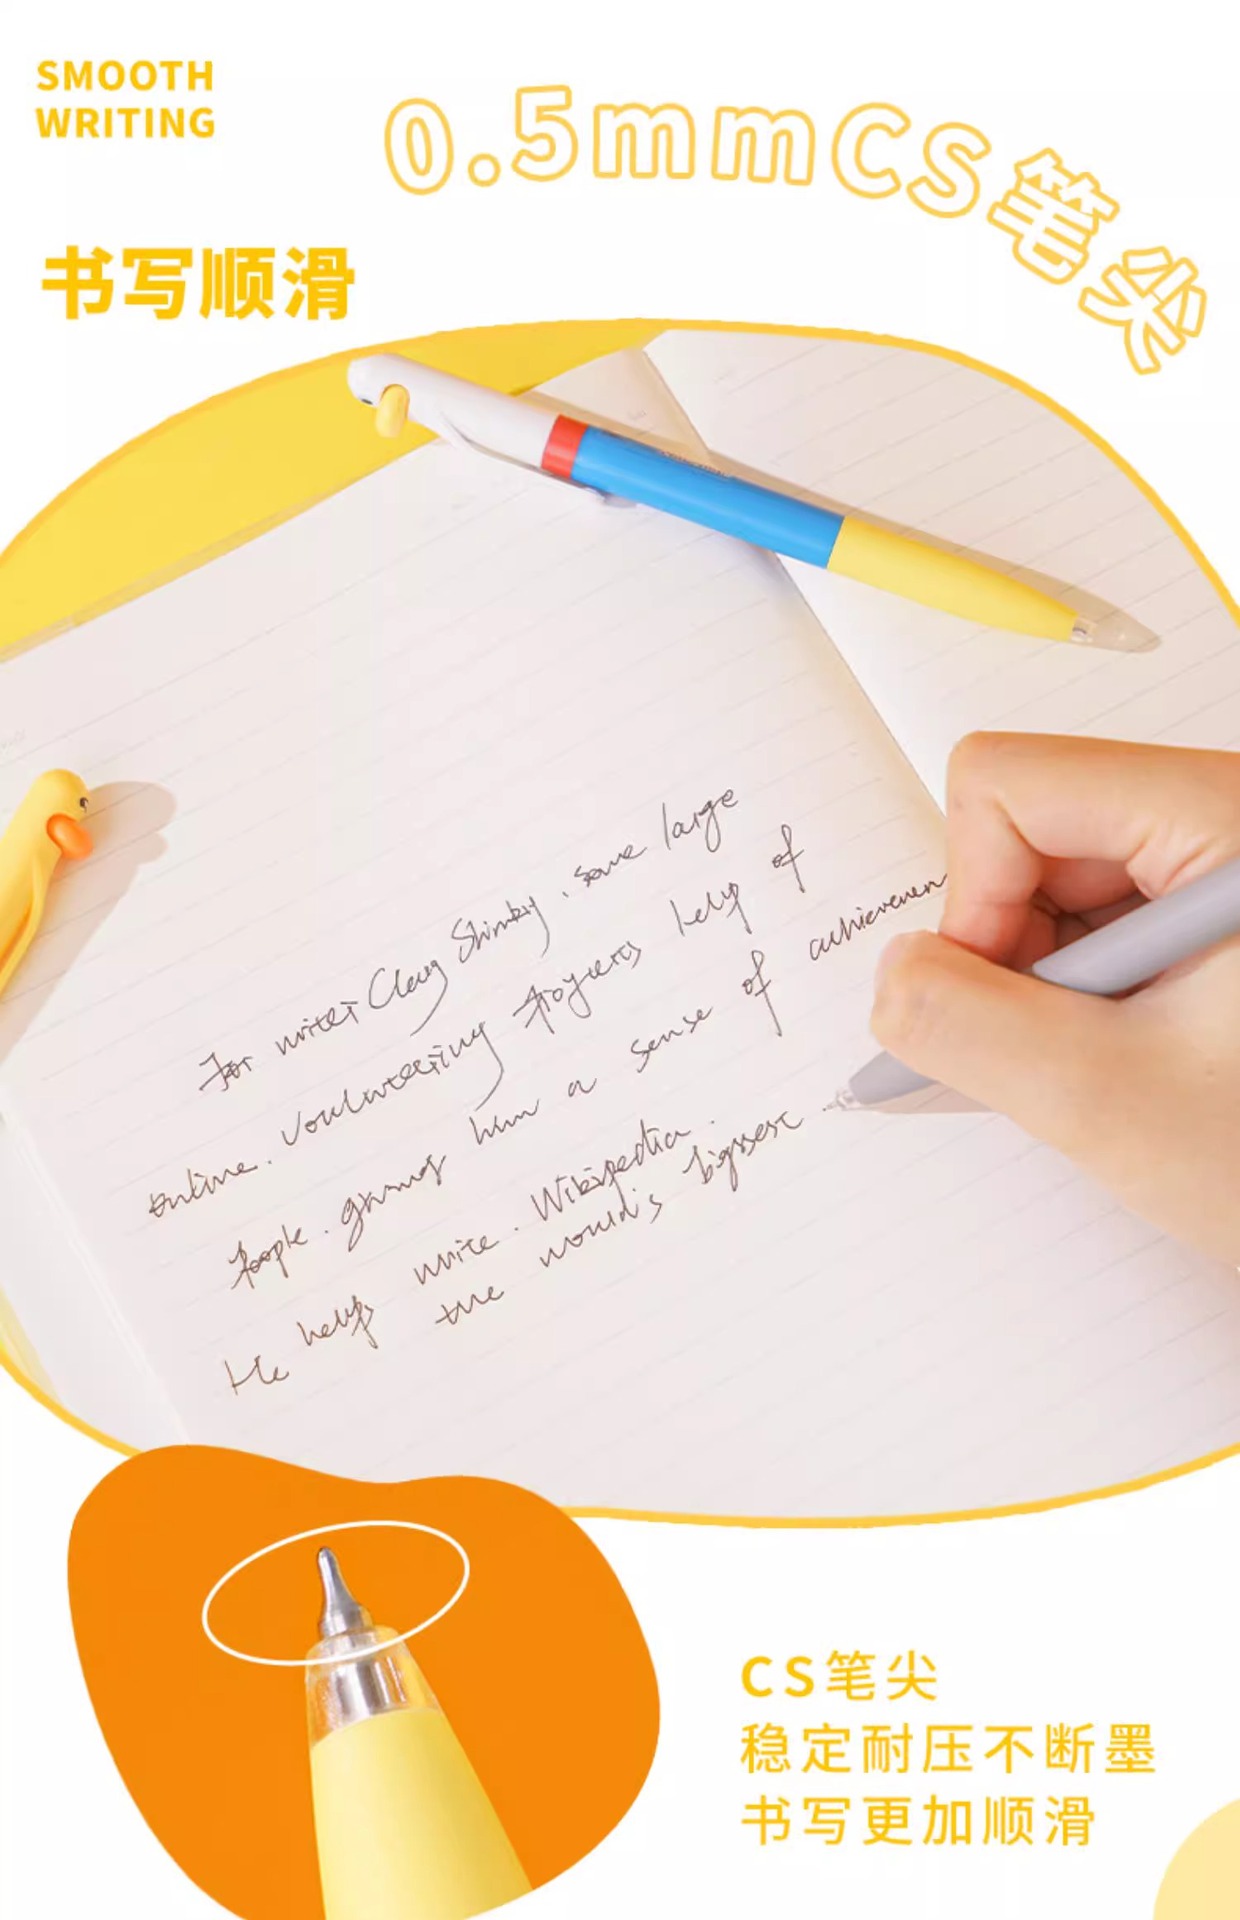 SMOOTH
WRITING
0.5mmCS笔尖
书写顺滑
For writer Clay Shirky, some large
online. voulnteering projects help of
people. giving him a sense of achievemen
He helps write. Wikipedia.
the would's biggest
CS笔尖
稳定耐压不断墨
书写更加顺滑